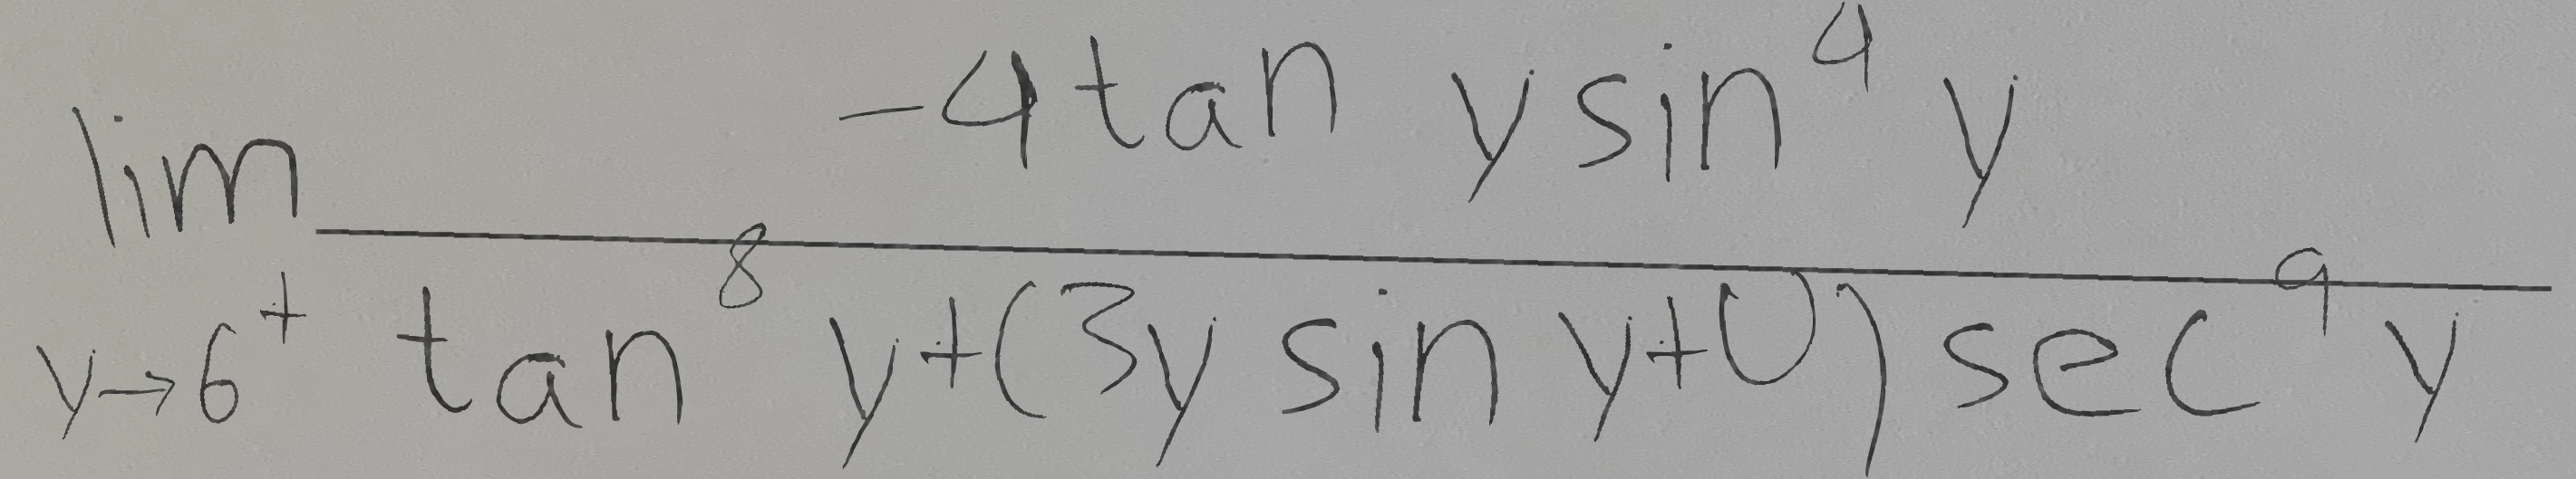 lim -4 tan y sin⁴ y
y→6⁺ tan⁸ y+(3y sin y+0) sec⁹ y